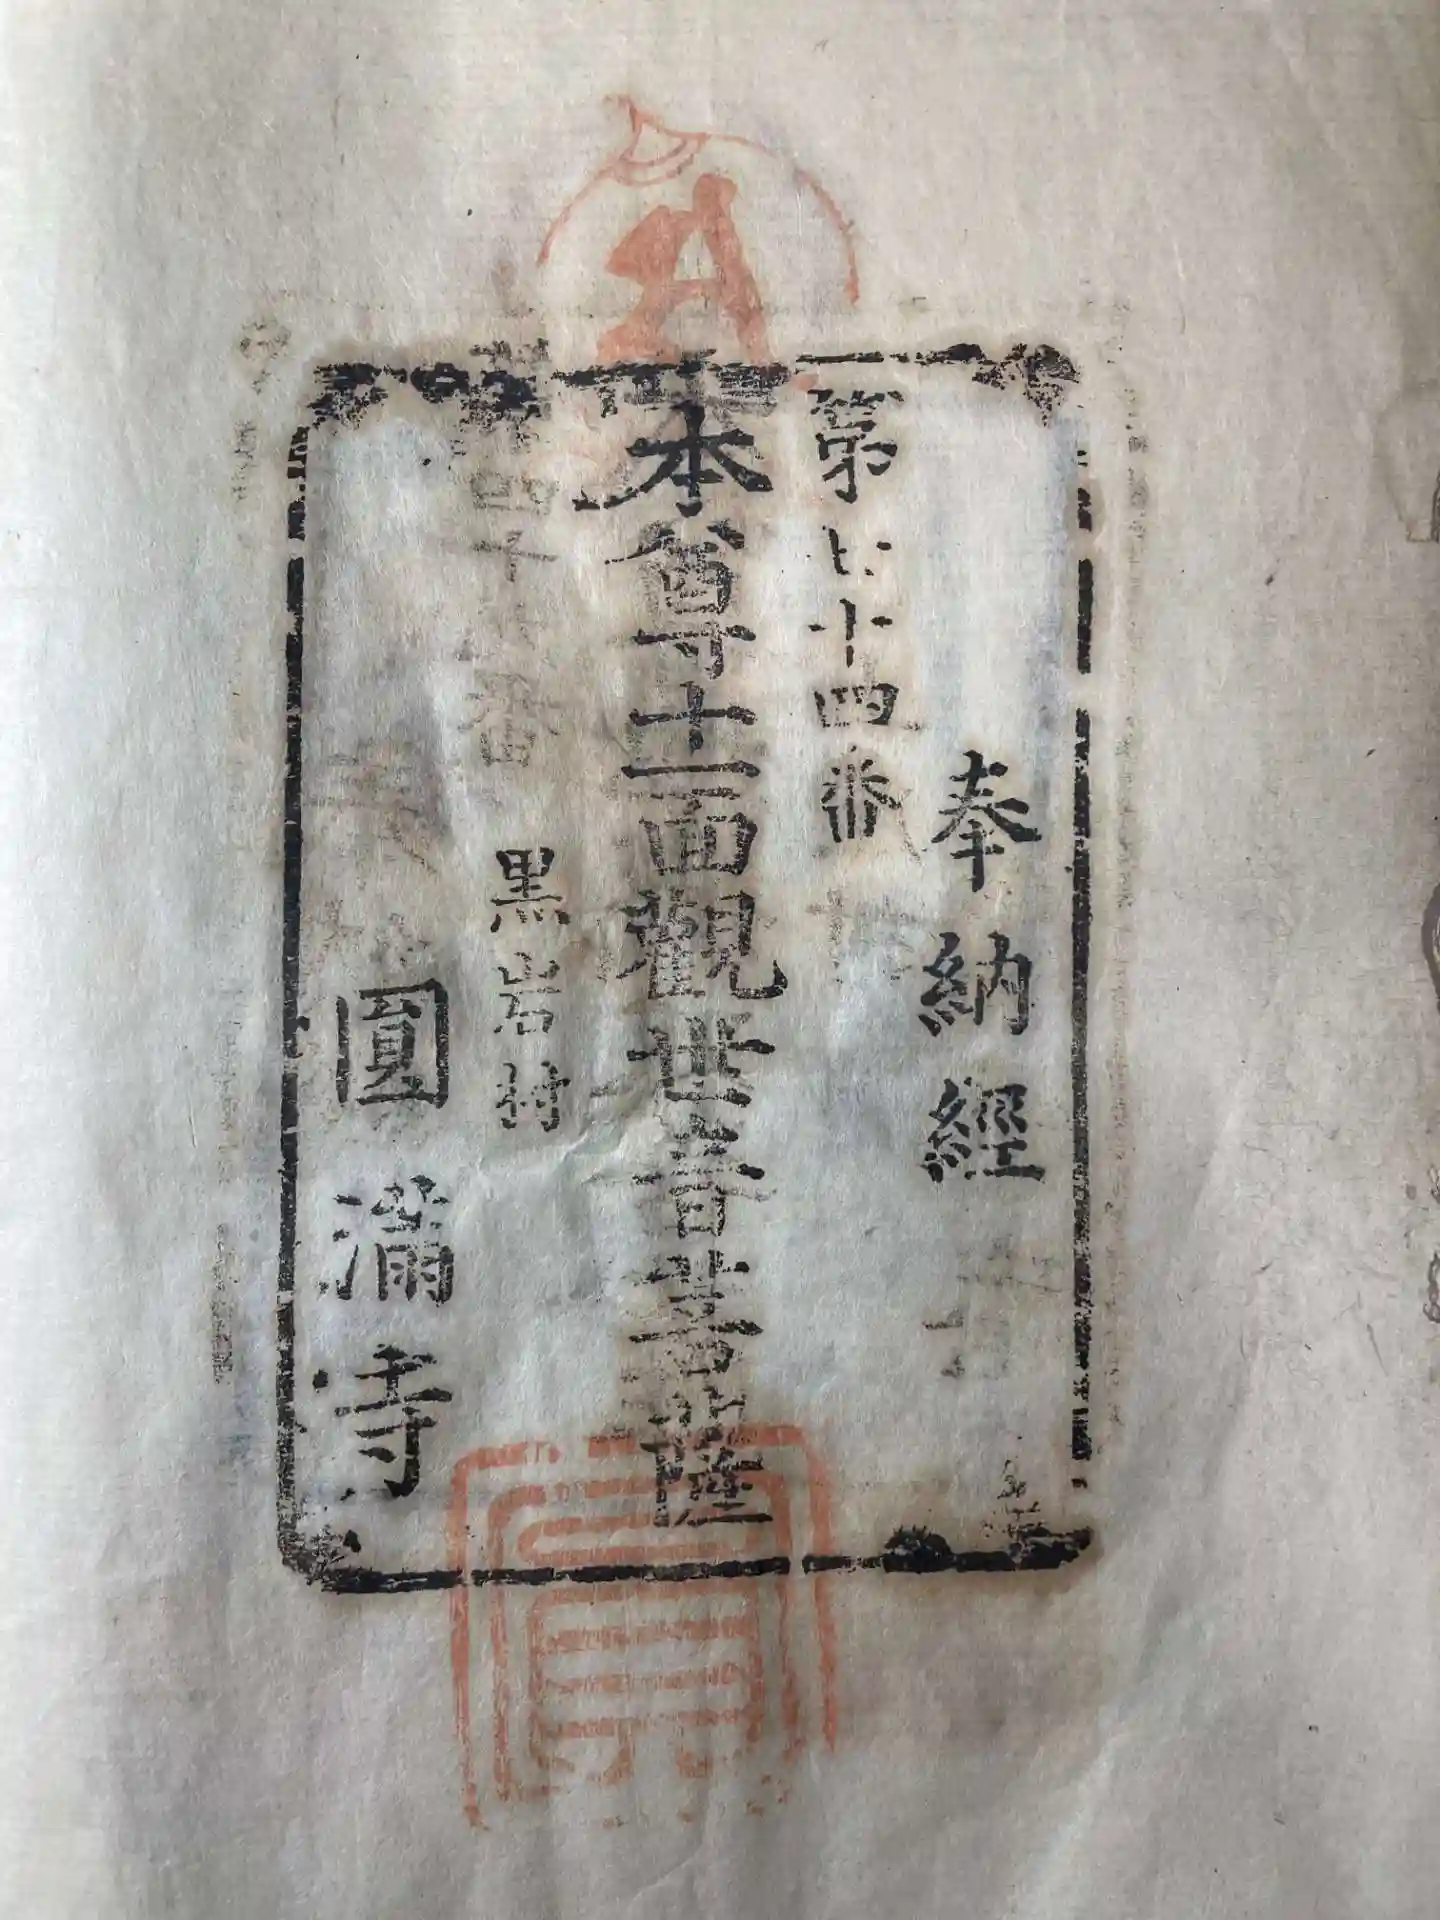 奉納經
第七十四番
本尊十一面觀世音菩薩
黒岩村
圓滿寺